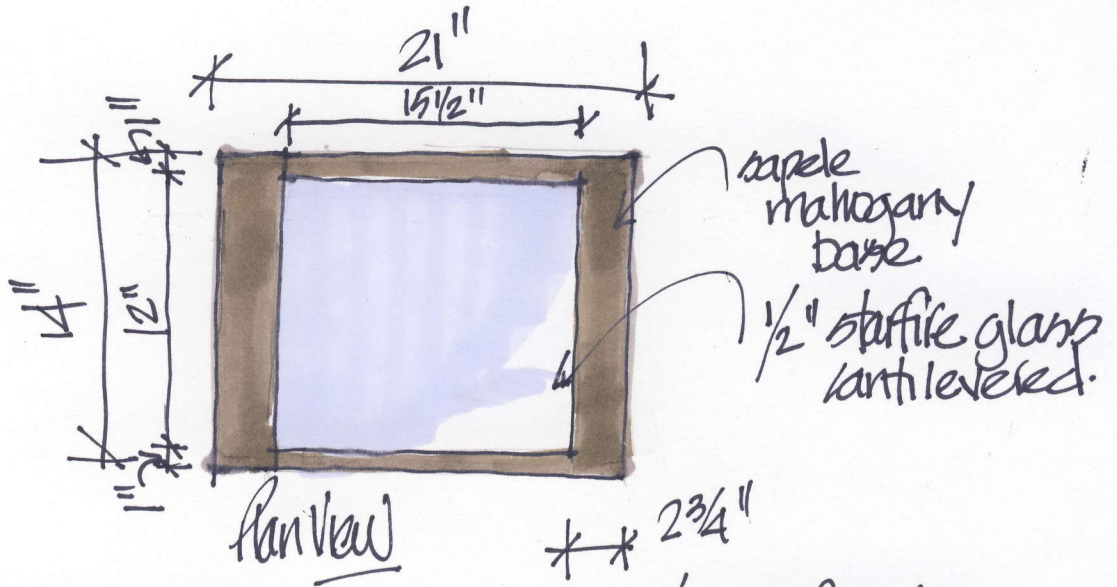 21"
15 1/2"
1"
14"
12"
1"
sapele
mahogany
base
1/2" starfire glass
cantilevered.
Plan View
2 3/4"